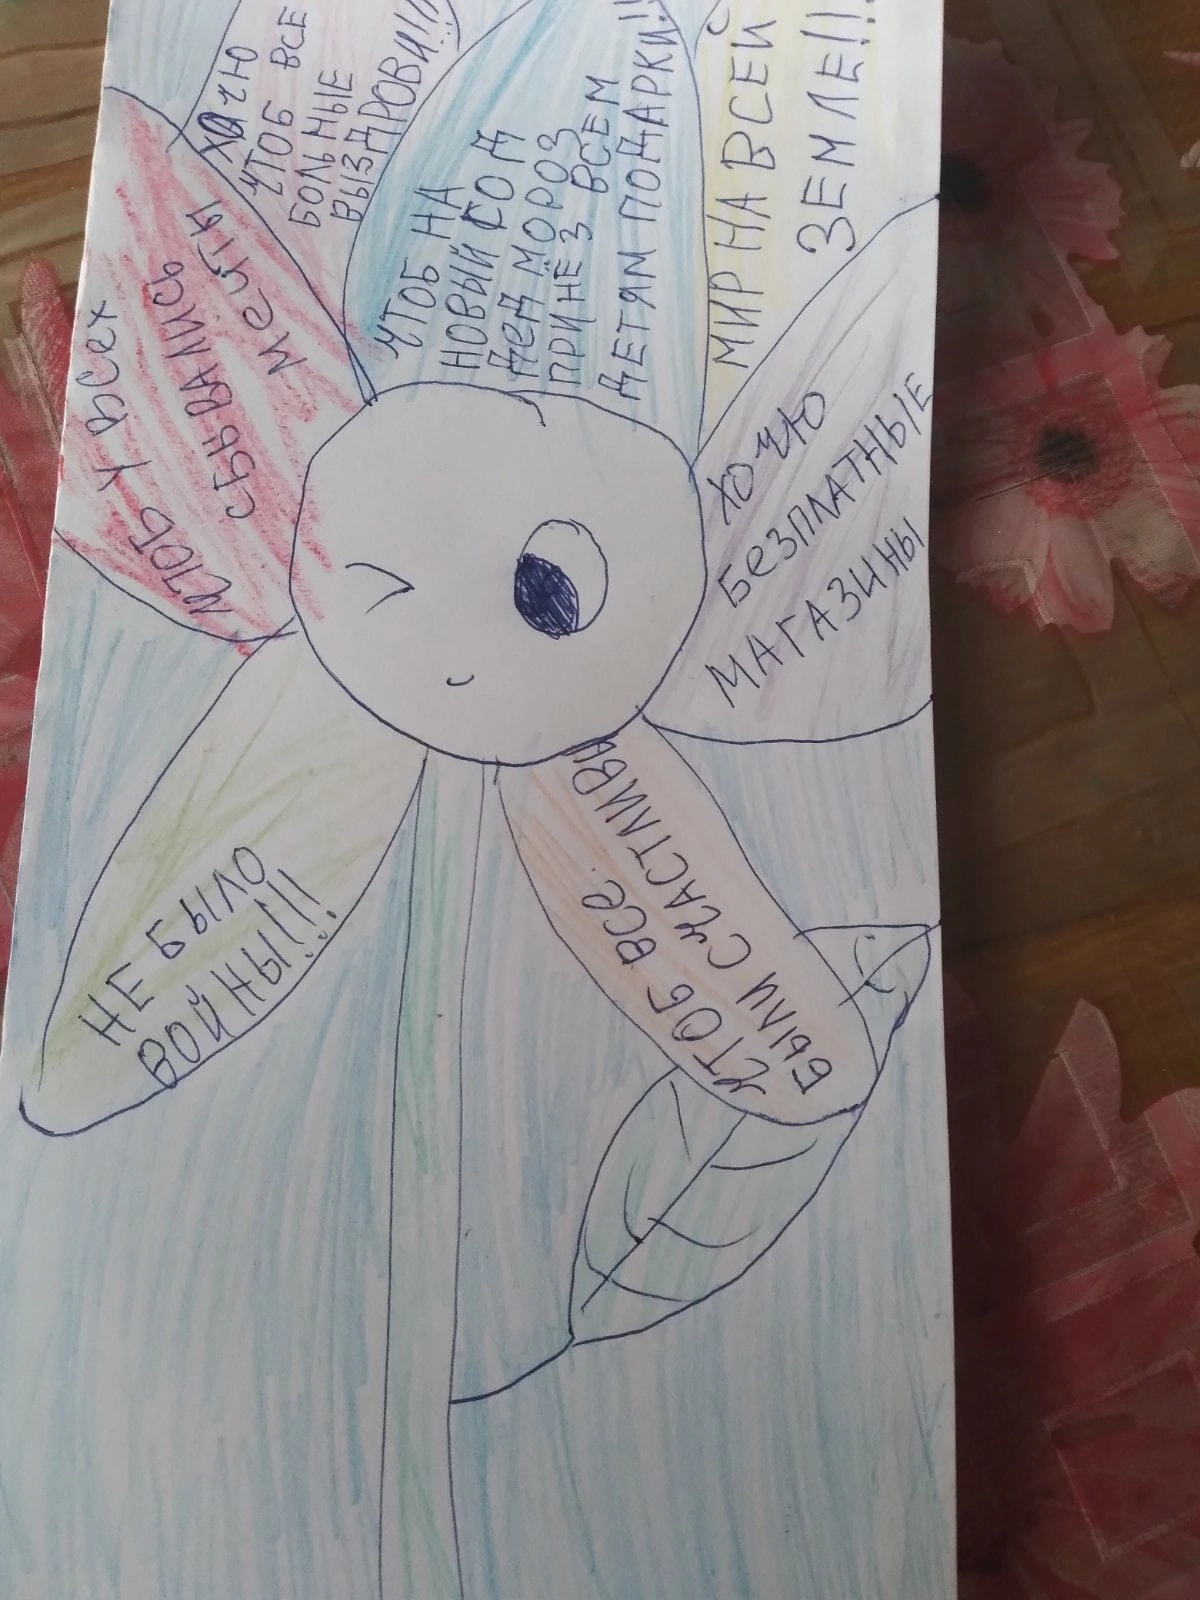 ЧТОБ У ВСЕХ
СБЫВАЛИСЬ
МЕЧТЫ
ХОЧЮ
ЧТОБ ВСЕ
БОЛЬНЫЕ
ВЫЗДРОВИ!!!
ЧТОБ НА
НОВЫЙ ГОД
ДЕД МОРОЗ
ПРИНЕЗ ВСЕМ
ДЕТЯМ ПОДАРКИ!!
МИР НА ВСЕЙ
ЗЕМЛЕ!!!
ХОЧЮ
БЕЗПЛАТНЫЕ
МАГАЗИНЫ
ЧТОБ ВСЕ
БЫЛИ СЧАСТЛИВЫ
НЕ БЫЛО
ВОЙНЫ!!!